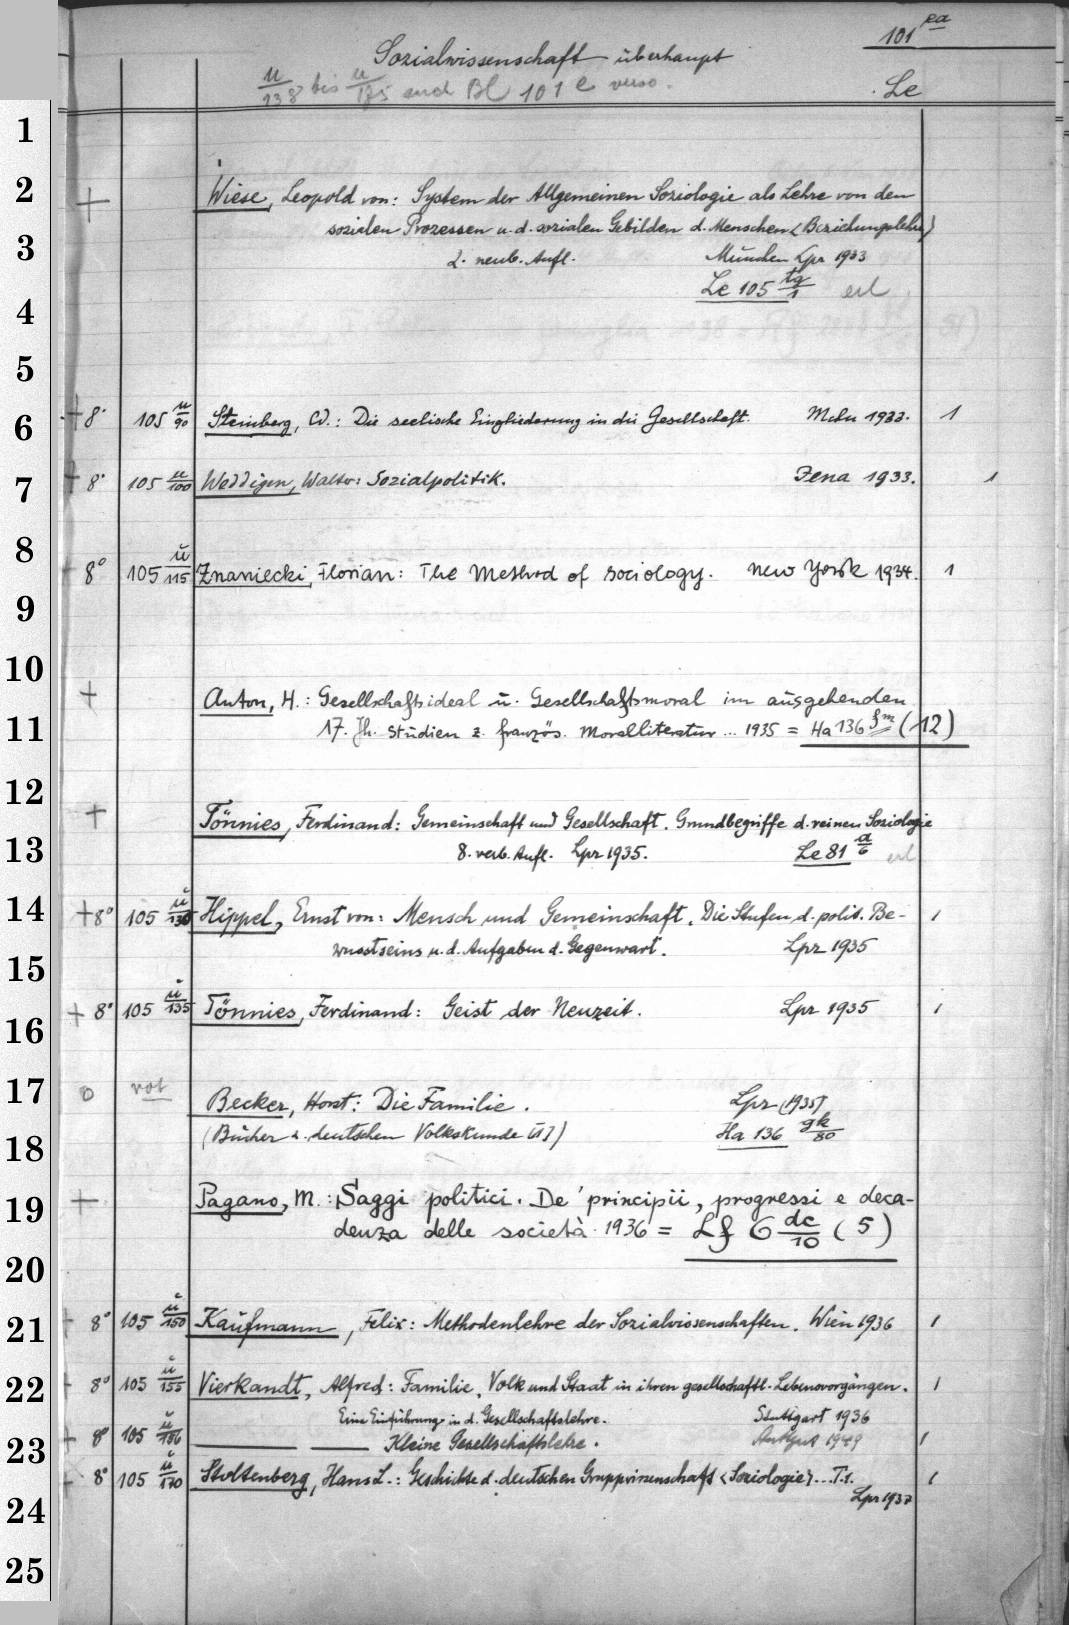 101 ea
Sozialwissenschaft überhaupt
u/138 bis u/175 auch Bl 101 e verso.
Le
1
2 + Wiese, Leopold von: System der Allgemeinen Soziologie als Lehre von den
sozialen Prozessen u. d. sozialen Gebilden d. Menschen <Beziehungslehre>
3 2. neub. Aufl. München Lpz 1933
Le 105 tg/1 erl
4
5
6 + 8° 105 u/90 Steinberg, W.: Die seelische Eingliederung in die Gesellschaft. Mchn 1933. 1
7 + 8° 105 u/100 Weddigen, Walter: Sozialpolitik. Jena 1933. 1
8
8° 105 u/115 Znaniecki, Florian: The Method of Sociology. New York 1934. 1
9
10
+ Anton, H.: Gesellschaftsideal u. Gesellschaftsmoral im ausgehenden
11 17. Jh. Studien z. französ. Moralliteratur ... 1935 = Ha 136 fm (12)
12
+ Tönnies, Ferdinand: Gemeinschaft und Gesellschaft. Grundbegriffe d. reinen Soziologie
13 8. verb. Aufl. Lpz 1935. Le 81 a/6 erl
14 + 8° 105 u/130 Hippel, Ernst von: Mensch und Gemeinschaft. Die Stufen d. polit. Be-
wusstseins u. d. Aufgaben d. Gegenwart. Lpz 1935 1
15
16 + 8° 105 u/135 Tönnies, Ferdinand: Geist der Neuzeit. Lpz 1935 1
17 0 vol Becker, Horst: Die Familie. Lpz (1935)
18 (Bücher z. deutschen Volkskunde [1]) Ha 136 gk/80
19 + Pagano, M.: Saggi politici. De' principii, progressi e deca-
denza delle società. 1936 = Lf 6 dc/10 (5)
20
21 + 8° 105 u/150 Kaufmann, Felix: Methodenlehre der Sozialwissenschaften. Wien 1936 1
22 + 8° 105 u/155 Vierkandt, Alfred: Familie, Volk und Staat in ihren gesellschaftl. Lebensvorgängen. 1
Eine Einführung in d. Gesellschaftslehre. Stuttgart 1936
23 + 8° 105 u/156 ——— ——— Kleine Gesellschaftslehre. 1949 1
8° 105 u/170 Stoltenberg, Hans L.: Geschichte d. deutschen Gruppwissenschaft <Soziologie> ... T. 1. 1
24 Lpz 1937
25